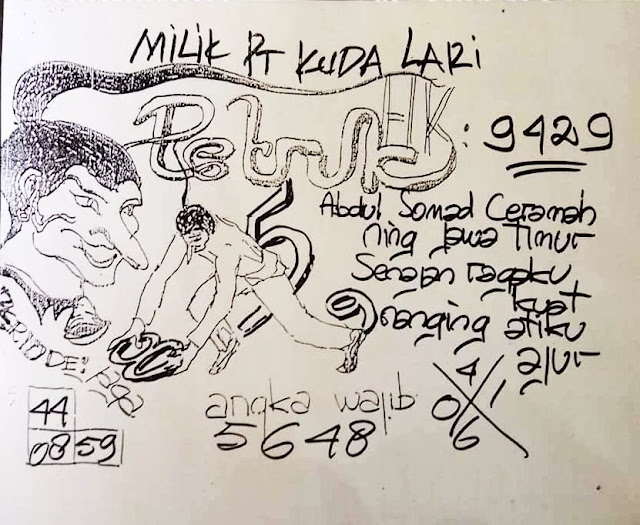 MILIK PT KUDA LARI
Petruk HK: 9429
Abdul Somad Ceramah
ning Jawa Timur
Senajan ragaku
kuat
nanging atiku
ajur
PERIODE:
44
08 59
angka wajib
5648
4
0 1
6